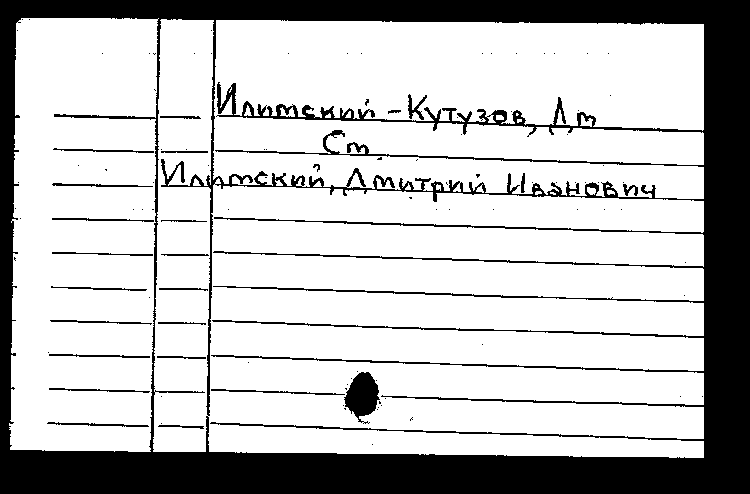 Илимский-Кутузов, Дм
См.
Илимский, Дмитрий Иванович